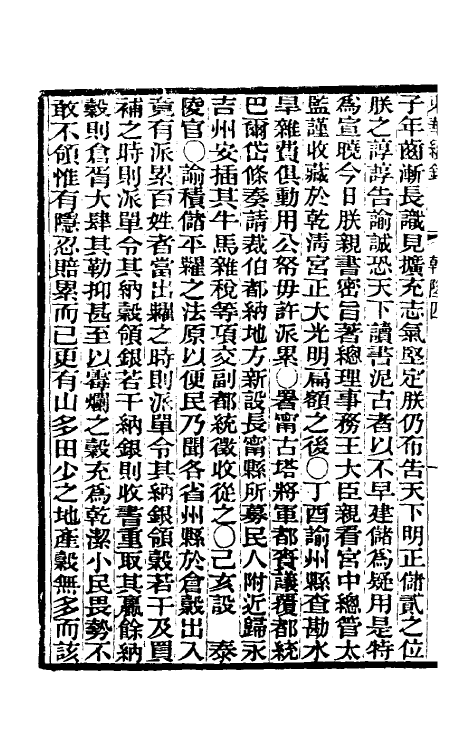 子年齒漸長識見擴充志氣堅定朕仍布告天下明正儲貳之位
朕之諄諄告諭誠恐天下讀書泥古者以不早建儲爲疑用是特
爲宣曉今日朕親書密旨著總理事務王大臣親看宮中總管太
監謹收藏於乾淸宮正大光明扁額之後〇丁酉諭州縣查勘水
旱雜費俱動用公帑毋許派累〇署甯古塔將軍都賚議覆都統
巴爾岱條奏請裁伯都納地方新設長甯縣所募民人附近歸永
吉州安插其牛馬雜稅等項交副都統徵收從之〇己亥設　泰
陵官〇諭積儲平糶之法原以便民乃聞各省州縣於倉穀出入
竟有派累百姓者當出糶之時則派單令其納銀領穀若干及買
補之時則派單令其納穀領銀若干納銀則收書重取其贏餘納
穀則倉胥大肆其勒抑甚至以霉爛之穀充爲乾潔小民畏勢不
敢不領惟有隱忍賠累而已更有山多田少之地產穀無多而該